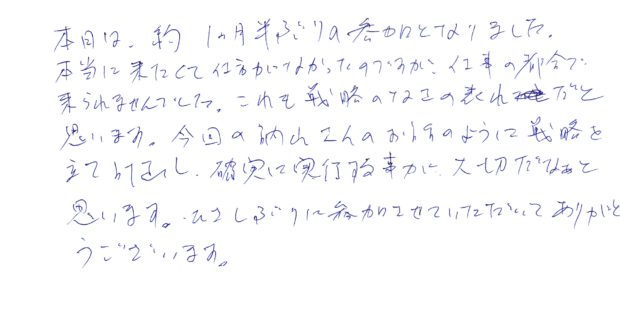 本日は、約1ヶ月半ぶりの参加となりました。
本当に来たくて仕方がなかったのですが、仕事の都合で
来られませんでした。これも戦略のなさの表れだと
思います。今回の納山さんのお話のように戦略を
立て、確実に実行する事が大切だなぁと
思います。ひさしぶりに参加させていただいてありがと
うございます。